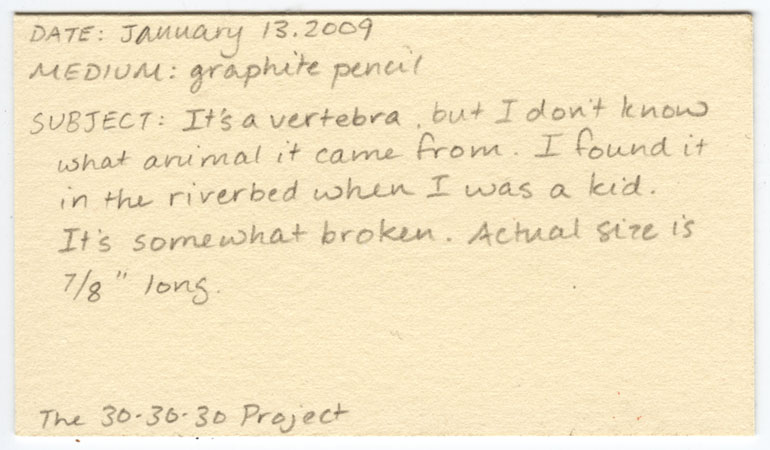 DATE: January 13.2009
MEDIUM: graphite pencil
SUBJECT: It's a vertebra, but I don't know
what animal it came from. I found it
in the riverbed when I was a kid.
It's somewhat broken. Actual size is
7/8" long.
The 30-30-30 Project